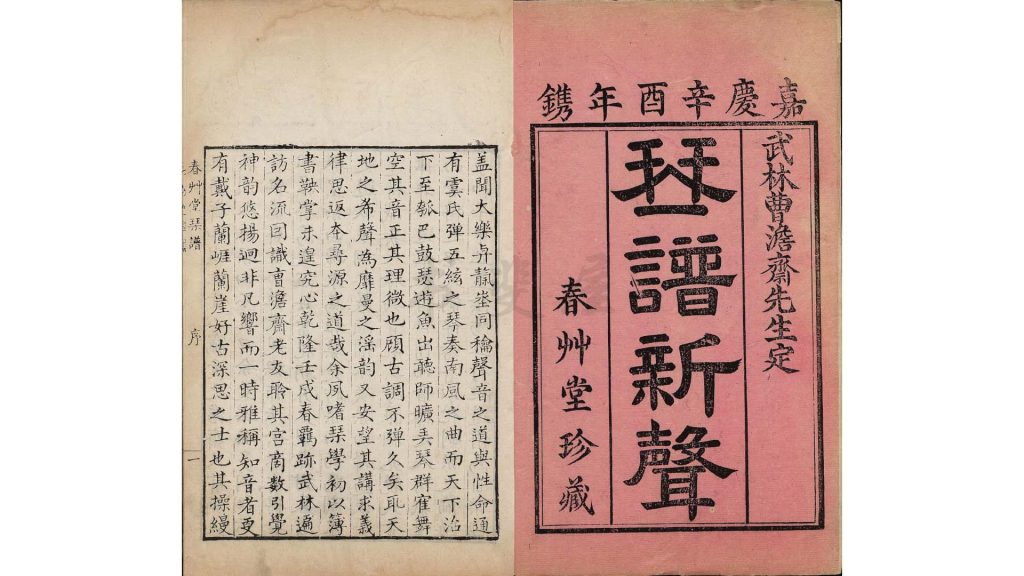 嘉慶辛酉年鐫
武林曹澹齋先生定
琴譜新聲
春艸堂珍藏
盖聞大樂同龢聲音之道與性命通
有虞氏弹五絃之琴奏南風之曲而天下治
下至瓠巴鼓瑟遊魚出聽師曠弄琴群寉舞
空其音正其理微也顧古調不弹久矣耴天
地之希聲為靡曼之滛韵又安望其講求義
律思返夲尋源之道哉余夙嗜琹學初以簿
書鞅掌未遑究心乾隆壬戌春羈跡武林遍
訪名流囙識曹澹齋老友聆其宫商數引覺
神韵悠揚迥非凡響而一時雅稱知音者更
有戴子蘭崕蘭崖好古深思之士也其操縵
春艸堂琹譜
序
一